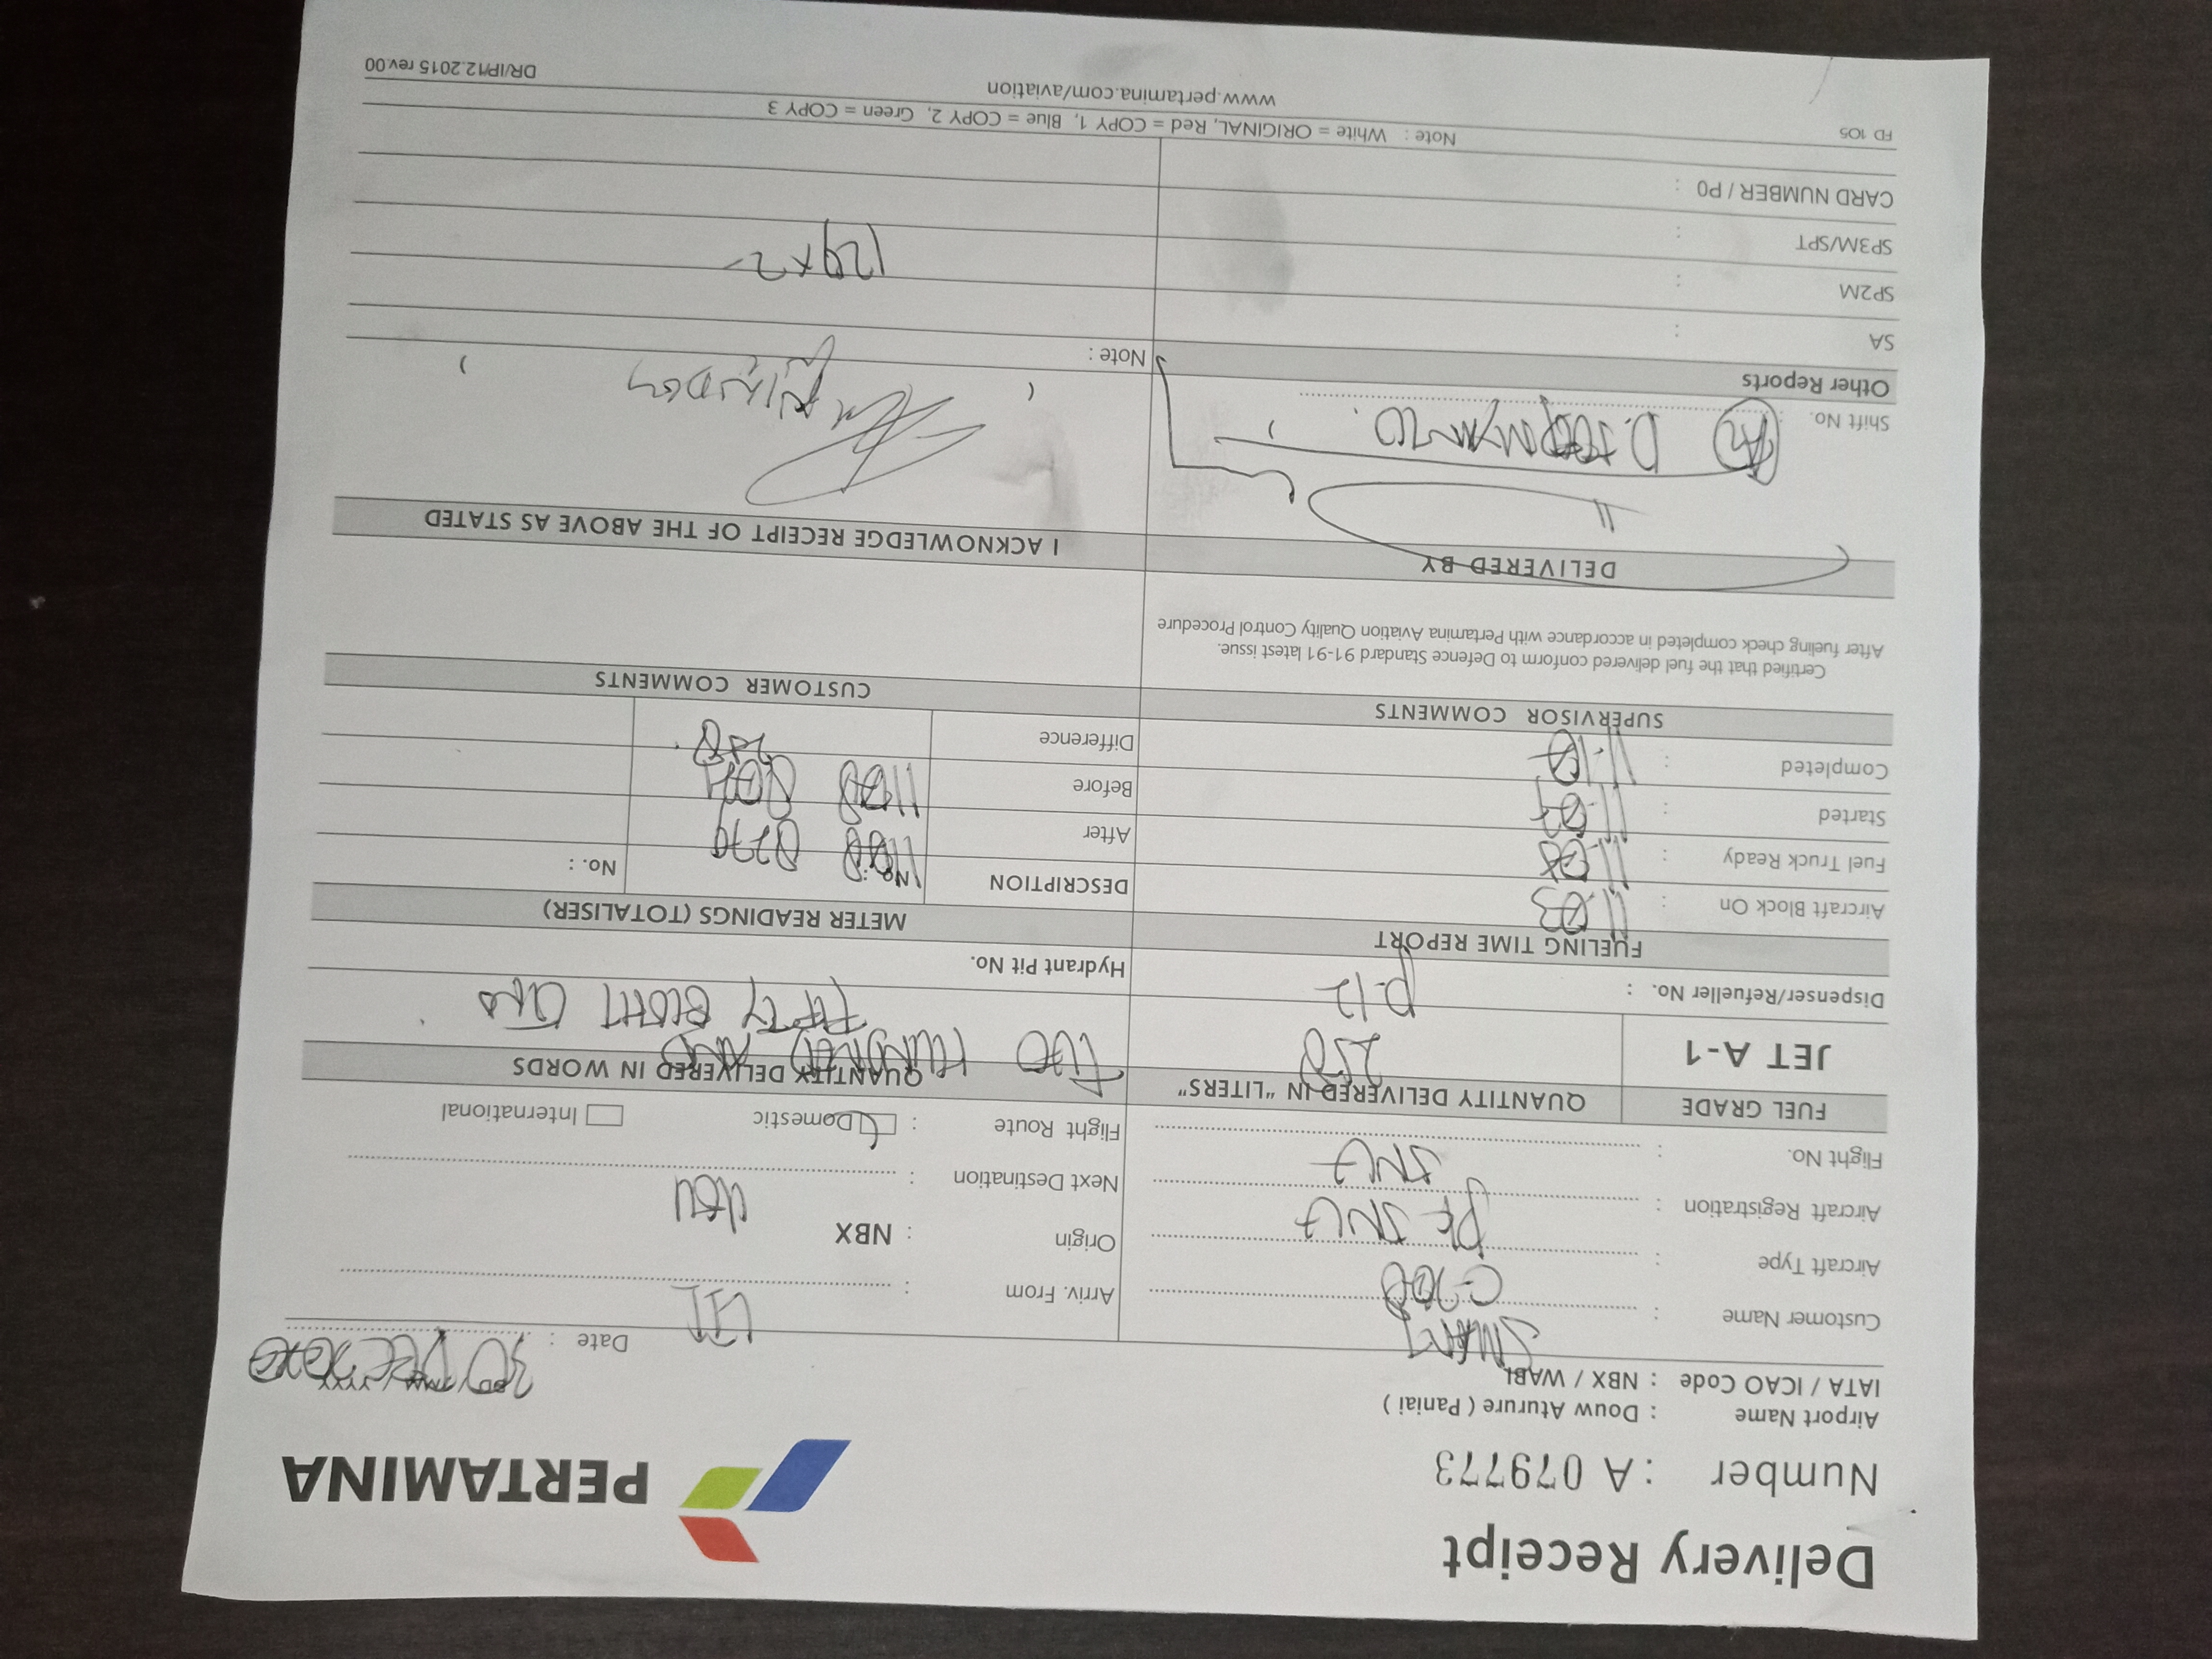 Delivery Receipt
PERTAMINA
Number : A 079773
Airport Name : Douw Aturure ( Paniai )
IATA / ICAO Code : NBX / WABI
Date : 30 DEC 2020
DD / MM / YYYY
Customer Name : SMART
Aircraft Type : C-208
Aircraft Registration :
Flight No. :
Arriv. From :
Origin : NBX
Next Destination :
Flight Route : Domestic International
FUEL GRADE
QUANTITY DELIVERED IN "LITERS"
QUANTITY DELIVERED IN WORDS
JET A-1
258
TWO HUNDRED AND
FIFTY EIGHT
Dispenser/Refueller No. : P.12
Hydrant Pit No.
FUELING TIME REPORT
METER READINGS (TOTALISER)
Aircraft Block On : 11.03
Fuel Truck Ready :
Started :
Completed :
DESCRIPTION No. : No. :
After
Before
Difference 258
SUPERVISOR COMMENTS
CUSTOMER COMMENTS
Certified that the fuel delivered conform to Defence Standard 91-91 latest issue.
After fueling check completed in accordance with Pertamina Aviation Quality Control Procedure
DELIVERED BY
I ACKNOWLEDGE RECEIPT OF THE ABOVE AS STATED
Shift No. :
Other Reports
Note :
SA :
SP2M :
SP3M/SPT :
129x2
CARD NUMBER / P0 :
FD 105
Note : White = ORIGINAL, Red = COPY 1, Blue = COPY 2, Green = COPY 3
www.pertamina.com/aviation
DR/IP/12.2015 rev.00